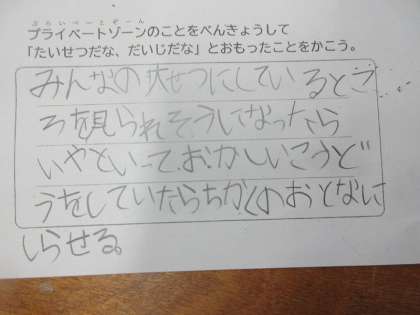 ぷらいべーとぞーん
プライベートゾーンのことをべんきょうして
「たいせつだな、だいじだな」とおもったことをかこう。
みんなの大せつにしているとこ
ろを見られそうになったら
いやといって、おかしいこうど
うをしていたらちかくのおとなに
しらせる。